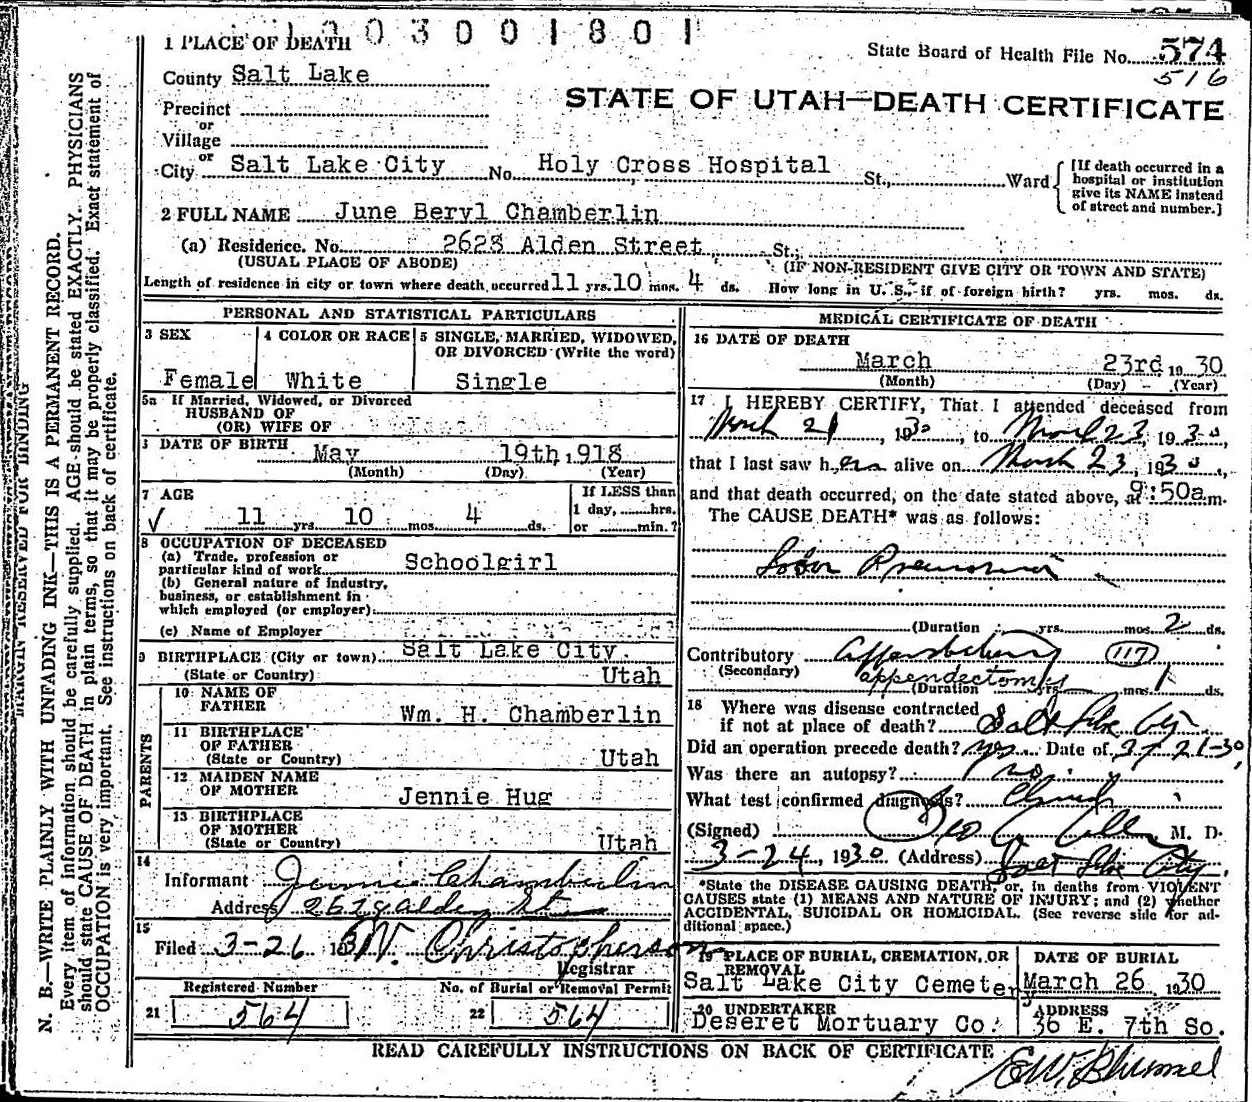 1003001801
1 PLACE OF DEATH
State Board of Health File No. 574
516
County Salt Lake
STATE OF UTAH—DEATH CERTIFICATE
Precinct
or
Village
or
City Salt Lake City No. Holy Cross Hospital St., Ward
[If death occurred in a
hospital or institution
give its NAME instead
of street and number.]
2 FULL NAME June Beryl Chamberlin
(a) Residence. No. 2628 Alden Street St.,
(USUAL PLACE OF ABODE) (IF NON-RESIDENT GIVE CITY OR TOWN AND STATE)
Length of residence in city or town where death occurred 11 yrs. 10 mos. 4 ds. How long in U. S., if of foreign birth? yrs. mos. ds.
PERSONAL AND STATISTICAL PARTICULARS
3 SEX
Female
4 COLOR OR RACE
White
5 SINGLE, MARRIED, WIDOWED,
OR DIVORCED (Write the word)
Single
5a If Married, Widowed, or Divorced
HUSBAND OF
(OR) WIFE OF
DATE OF BIRTH May 19th, 1918
(Month) (Day) (Year)
7 AGE
11 yrs. 10 mos. 4 ds.
If LESS than
1 day, hrs.
or min.?
8 OCCUPATION OF DECEASED
(a) Trade, profession or
particular kind of work Schoolgirl
(b) General nature of industry,
business, or establishment in
which employed (or employer)
(c) Name of Employer
9 BIRTHPLACE (City or town) Salt Lake City.
(State or Country) Utah
PARENTS
10 NAME OF
FATHER Wm. H. Chamberlin
11 BIRTHPLACE
OF FATHER
(State or Country) Utah
12 MAIDEN NAME
OF MOTHER Jennie Hug
13 BIRTHPLACE
OF MOTHER
(State or Country) Utah
14
Informant Jennie Chamberlin
Address 2628 Alden St
15
Filed 3-26 1930 W. Christopherson
Registrar
Registered Number
21 564
No. of Burial or Removal Permit
22 564
MEDICAL CERTIFICATE OF DEATH
16 DATE OF DEATH
March 23rd 1930
(Month) (Day) (Year)
17 I HEREBY CERTIFY, That I attended deceased from
March 21, 1930, to March 23, 1930,
that I last saw her alive on March 23, 1930,
and that death occurred, on the date stated above, at 9:50a.m.
The CAUSE DEATH* was as follows:
Lobar Pneumonia
(Duration yrs. mos. 2 ds.
Contributory 117
(Secondary) appendectomy
(Duration yrs. mos. 1 ds.
18 Where was disease contracted
if not at place of death? Salt Lake City
Did an operation precede death? yes Date of 3-21-30
Was there an autopsy? no
What test confirmed diagnosis? Clinical
(Signed) M. D.
3-24, 1930 (Address) Salt Lake City
*State the DISEASE CAUSING DEATH, or, in deaths from VIOLENT
CAUSES state (1) MEANS AND NATURE OF INJURY; and (2) whether
ACCIDENTAL, SUICIDAL OR HOMICIDAL. (See reverse side for ad-
ditional space.)
19 PLACE OF BURIAL, CREMATION, OR
REMOVAL
Salt Lake City Cemetery
DATE OF BURIAL
March 26 1930
20 UNDERTAKER
Deseret Mortuary Co.
ADDRESS
36 E. 7th So.
READ CAREFULLY INSTRUCTIONS ON BACK OF CERTIFICATE
MARGIN RESERVED FOR BINDING
N. B.—WRITE PLAINLY WITH UNFADING INK—THIS IS A PERMANENT RECORD.
Every item of information should be carefully supplied. AGE should be stated EXACTLY. PHYSICIANS
should state CAUSE OF DEATH in plain terms, so that it may be properly classified. Exact statement of
OCCUPATION is very important. See instructions on back of certificate.